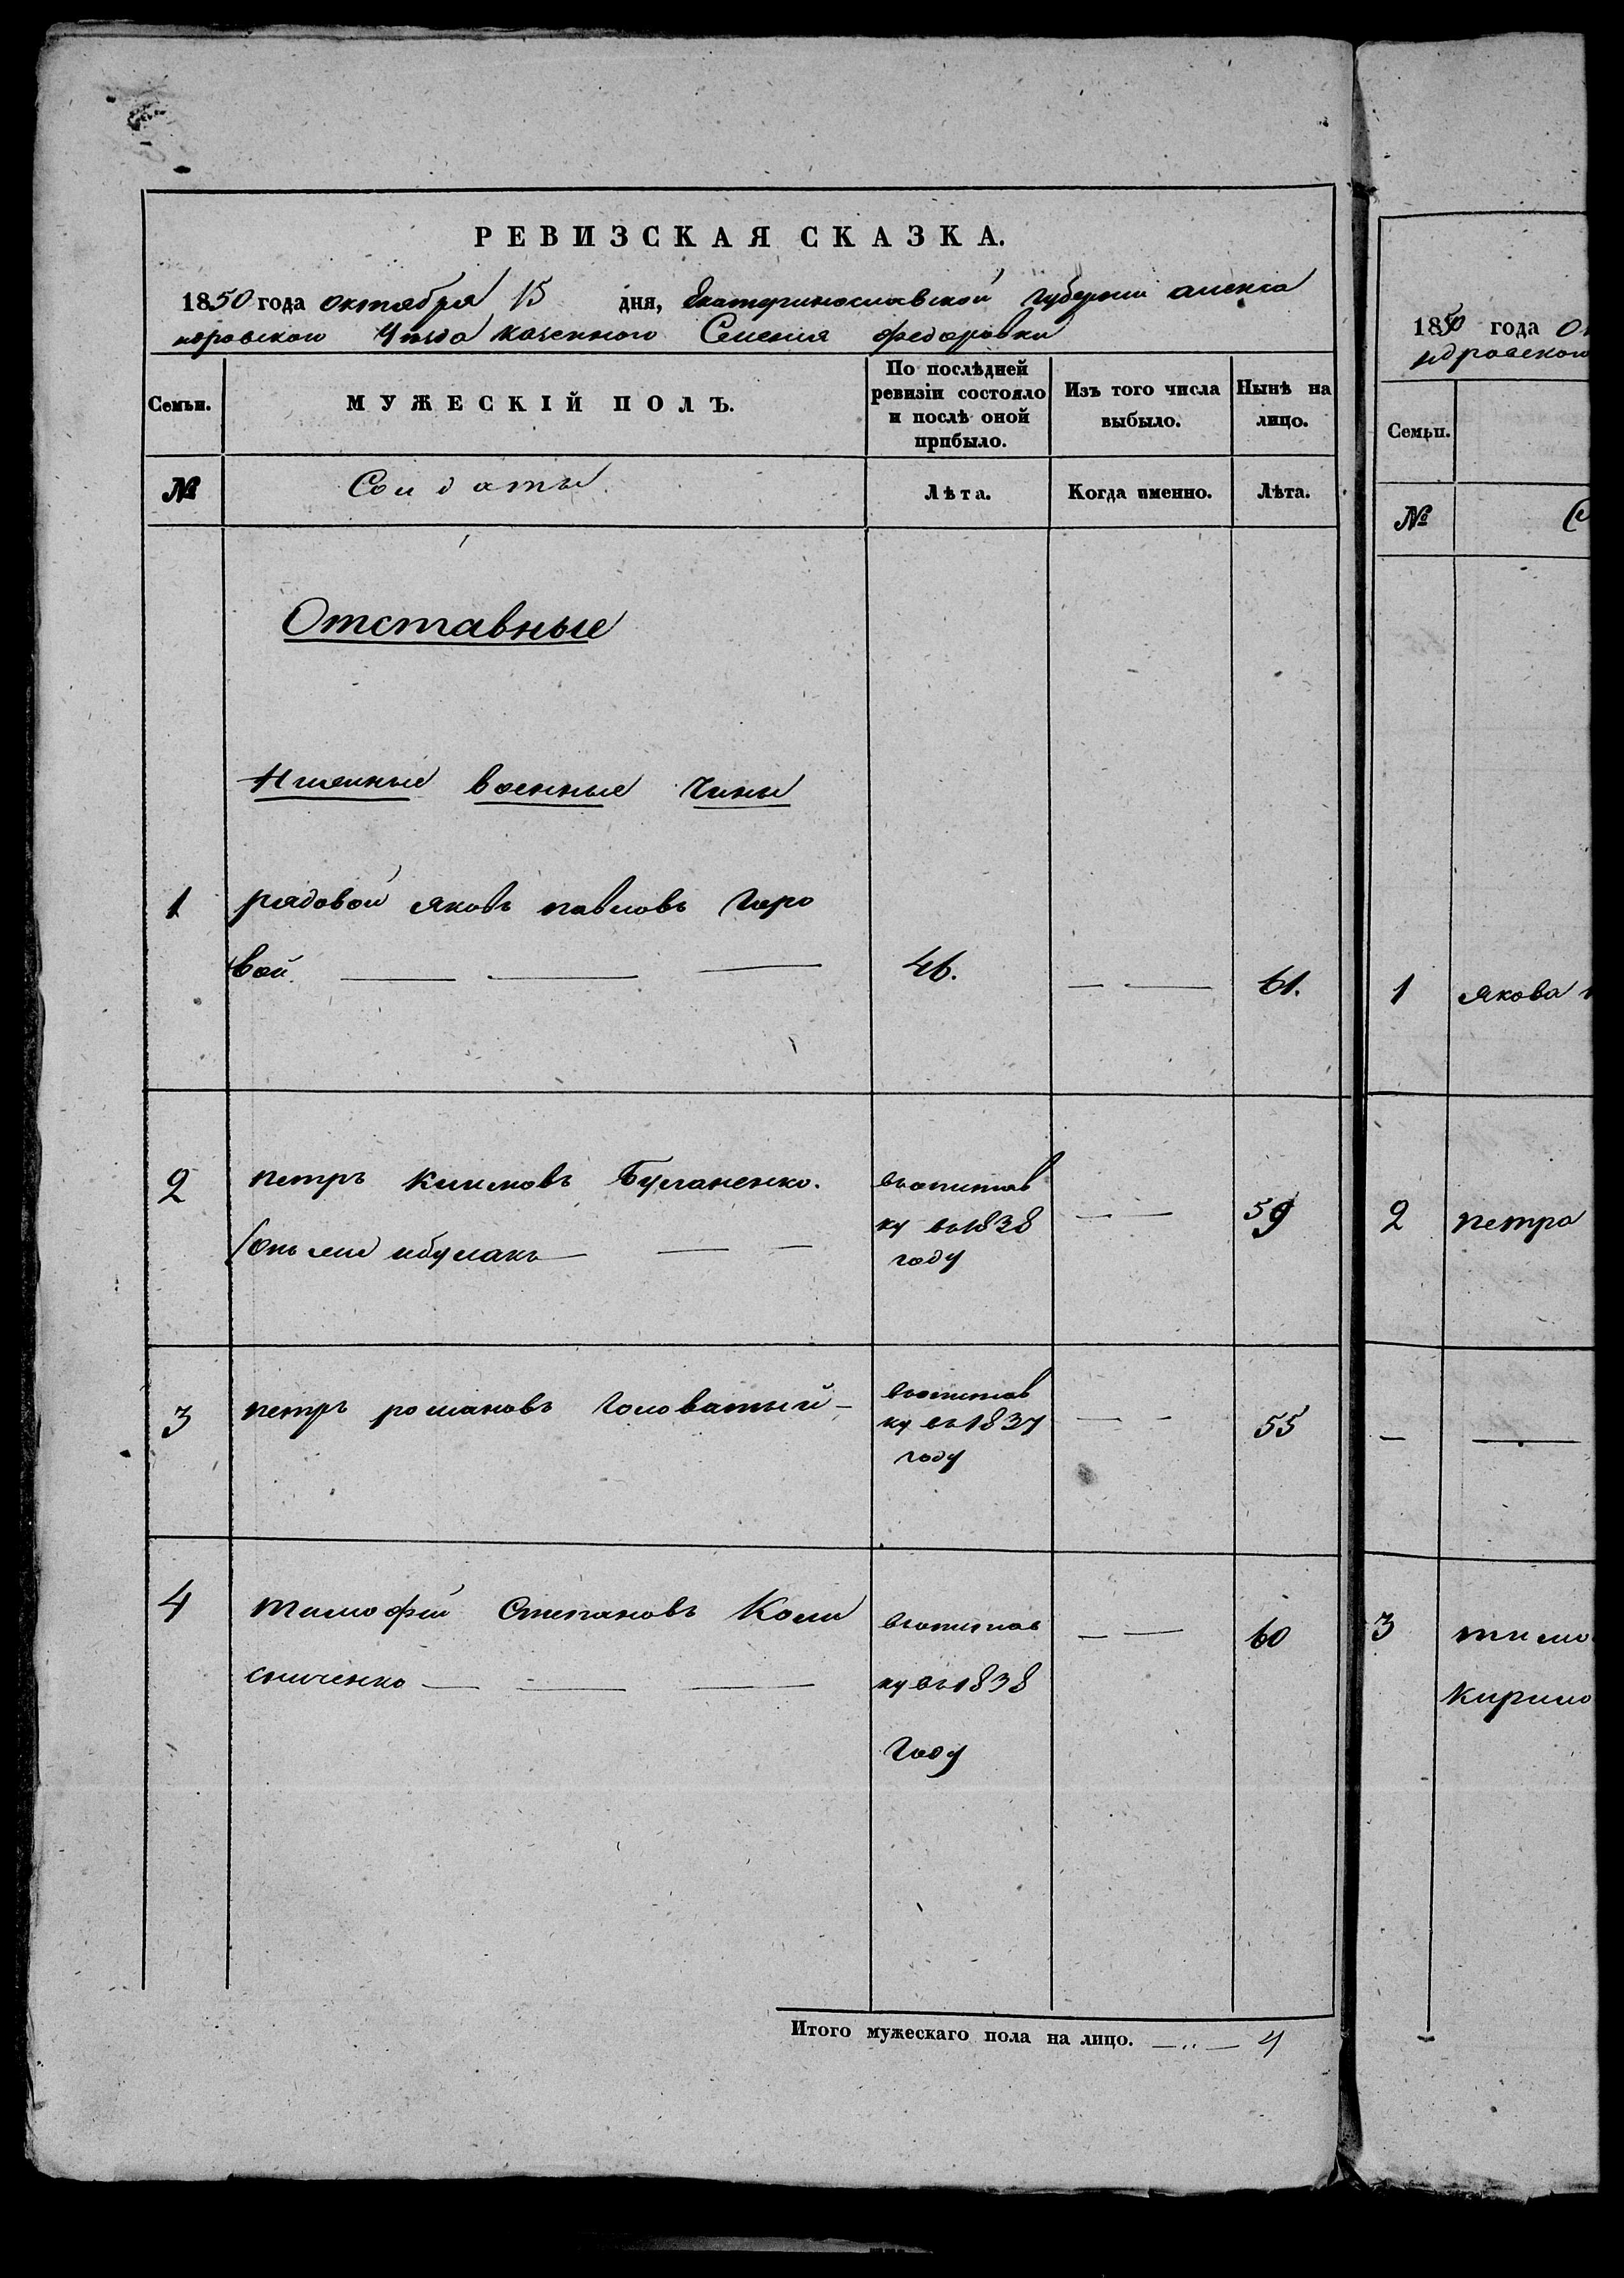 РЕВИЗСКАЯ СКАЗКА.
1850 года октября 15 дня, Екатеринославской губернии алекса
ндровскаго Уезда казенного Селения федоровки
Семьи.
МУЖЕСКІЙ ПОЛЪ.
По послѣдней
ревизіи состояло
и послѣ оной
прибыло.
Изъ того числа
выбыло.
Нынѣ на
лицо.
№
Солдаты
Лѣта.
Когда именно.
Лѣта.
Отставные
Нижние военные чины
1 рядовой яковъ павловъ Горо
вой 46. 61.
2 петръ климовъ Буланенко. въотстав
ку въ1838 59
году
3 петръ романовъ головатый въотстав
ку въ1837 55
году
4 тимофей Степановъ Коли въотстав 60
сниченко ку въ1838
году
Итого мужескаго пола на лицо. 4
1850 года о
ндровского
Семьи.
№
1 якова
2 петра
3 тимо
кирило